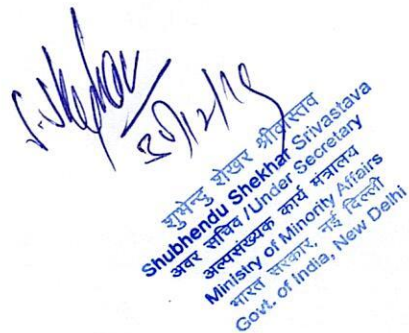 S. Shekhar
30/12/19
शुभेन्दु शेखर श्रीवास्तव
Shubhendu Shekhar Srivastava
अवर सचिव / Under Secretary
अल्पसंख्यक कार्य मंत्रालय
Ministry of Minority Affairs
भारत सरकार, नई दिल्ली
Govt. of India, New Delhi